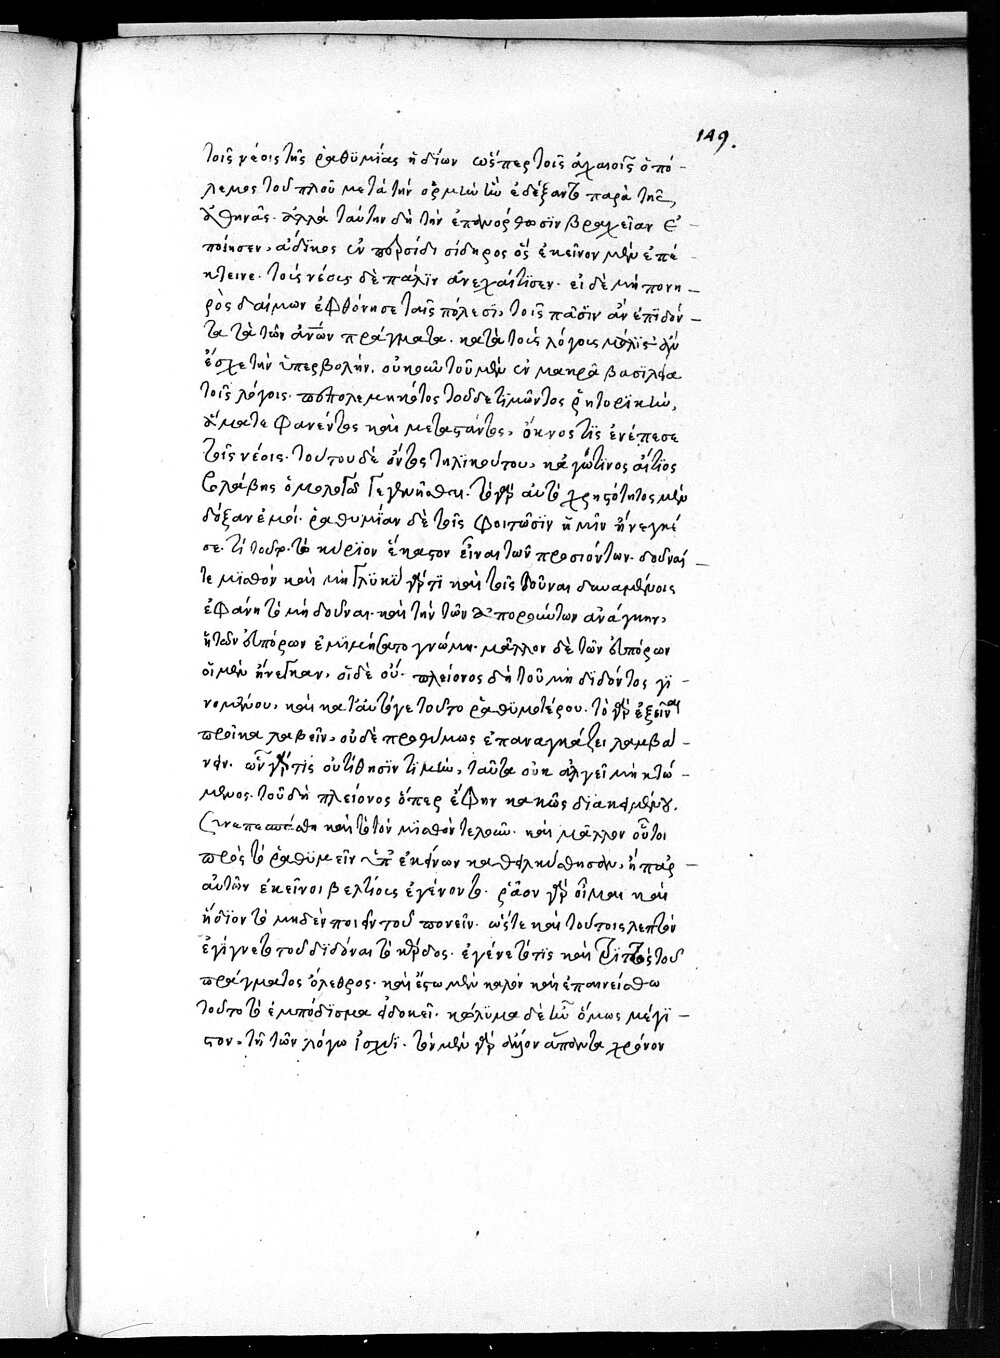 149.
τοῖς νέοις τῆς ῥαθυμίας ἡδίων ὥσπερ τοῖς ἀχαιοῖς ὁ πό-
λεμος τοῦ πλοῦ μετὰ τὴν ὁρμὴν ἣν ἐδέξαντο παρὰ τῆς
ἀθηνᾶς. ἀλλὰ ταύτην δὴ τὴν ἐπανόρθωσϊν βραχεῖαν ἐ-
ποίησεν, ἄδϊκος ἐν περσίδι σίδηρος ὃς ἐκεῖνον μὲν ἀπέ-
κτεινε. τοὺς νέους δὲ πάλϊν ἀνεχαίτϊσεν. εἰ δὲ μὴ πονη-
ρὸς δαίμων ἐφθόνησε ταῖς πόλεσϊ, τοῖς πᾶσϊν ἂν ἐπϊδόν-
τα τὰ τῶν ἀν̅ων πράγματα. κατὰ τοὺς λόγους μάλϊστ' ἂν
ἔσχε τὴν ὑπερβολήν. οὐκοῦν τοῦ μὲν ἐν μακρᾶ βασϊλεία
τοῖς λόγοις πεπολεμηκότος τοῦ δὲ τιμῶντος ῥητορϊκὴν,
ἅμα τε φανέντος καὶ μεταστάντος, ὄκνος τϊς ἐνέπεσε
τοῖς νέοις. τούτου δὲ ὄντος τηλϊκούτου, κἀγώ τϊνος αἴτϊος
βλάβης ὁμολογῶ γεγενῆσθαι. τὸ γὰρ αὐτὸ χρηστότητος μὲν
δόξαν ἐμοὶ. ῥαθυμϊαν δὲ τοῖς φοιτῶσϊν ἡμῖν ἤνεγκέ
σε. τί τοῦτο. τὸ κύρϊον ἕκαστον εἶναι τῶν προσιόντων. δοῦναί
τε μϊσθὸν καὶ μὴ γλϋκϋ γάρ τϊ καὶ τοῖς δοῦναι δυναμένοις
ἐφάνη τὸ μὴ δοῦναι. καὶ τὴν τῶν ἀπορούντων ἀνάγκην,
ἡ τῶν εὐπόρων ἐμϊμήσατο γνώμη. μᾶλλον δὲ τῶν εὐπόρων
οἱ μὲν ἤνεγκαν, οἱ δὲ οὔ. πλείονος δὴ τοῦ μὴ δϊδόντος γϊ-
νομένου, καὶ κατ' αὐτό γε τοῦτο ῥαθϋμοτέρου. τὸ γὰρ ἐξεῖναι
προῖκα λαβεῖν, οὐδὲ προθύμως ἐπαναγκάζει λαμβά-
νειν. ὧν γάρ τις οὐ τίθησϊν τϊμὴν, ταῦτα οὐκ ἀλγεῖ μὴ κτώ-
μενος. τοῦ δὴ πλείονος ὅπερ ἔφην κακῶς δϊακειμένου.
συνεπεσπάσθη καὶ τὸ τὸν μϊσθὸν τελοῦν. καὶ μᾶλλον οὗτοι
πρὸς τὸ ῥαθϋμεῖν ὑπ' ἐκείνων καθειλκύσθησαν, ἢ παρ-
αὐτῶν ἐκεῖνοι βελτίους ἐγένοντο. ῥᾶον γὰρ οἶμαι καὶ
ἥδϊον τὸ μηδὲν ποιεῖν τοῦ πονεῖν. ὥστε καὶ τούτοις λεπτὸν
ἐγίγνετο τοῦ δϊδόναι τὸ κέρδος. ἐγένετό τϊς καὶ τρίτος τοῦ
πράγματος ὄλεθρος. καὶ ἔστω μὲν καλὸν καὶ ἐπαινείσθω
τοῦτο τὸ ἐμπόδϊσμα εἰ δοκεῖ. κώλϋμα δὲ ἦν ὅμως μέγϊ-
στον, τῇ τῶν λόγων ἰσχύϊ. τὸν μὲν γὰρ ἅπαντα χρόνον